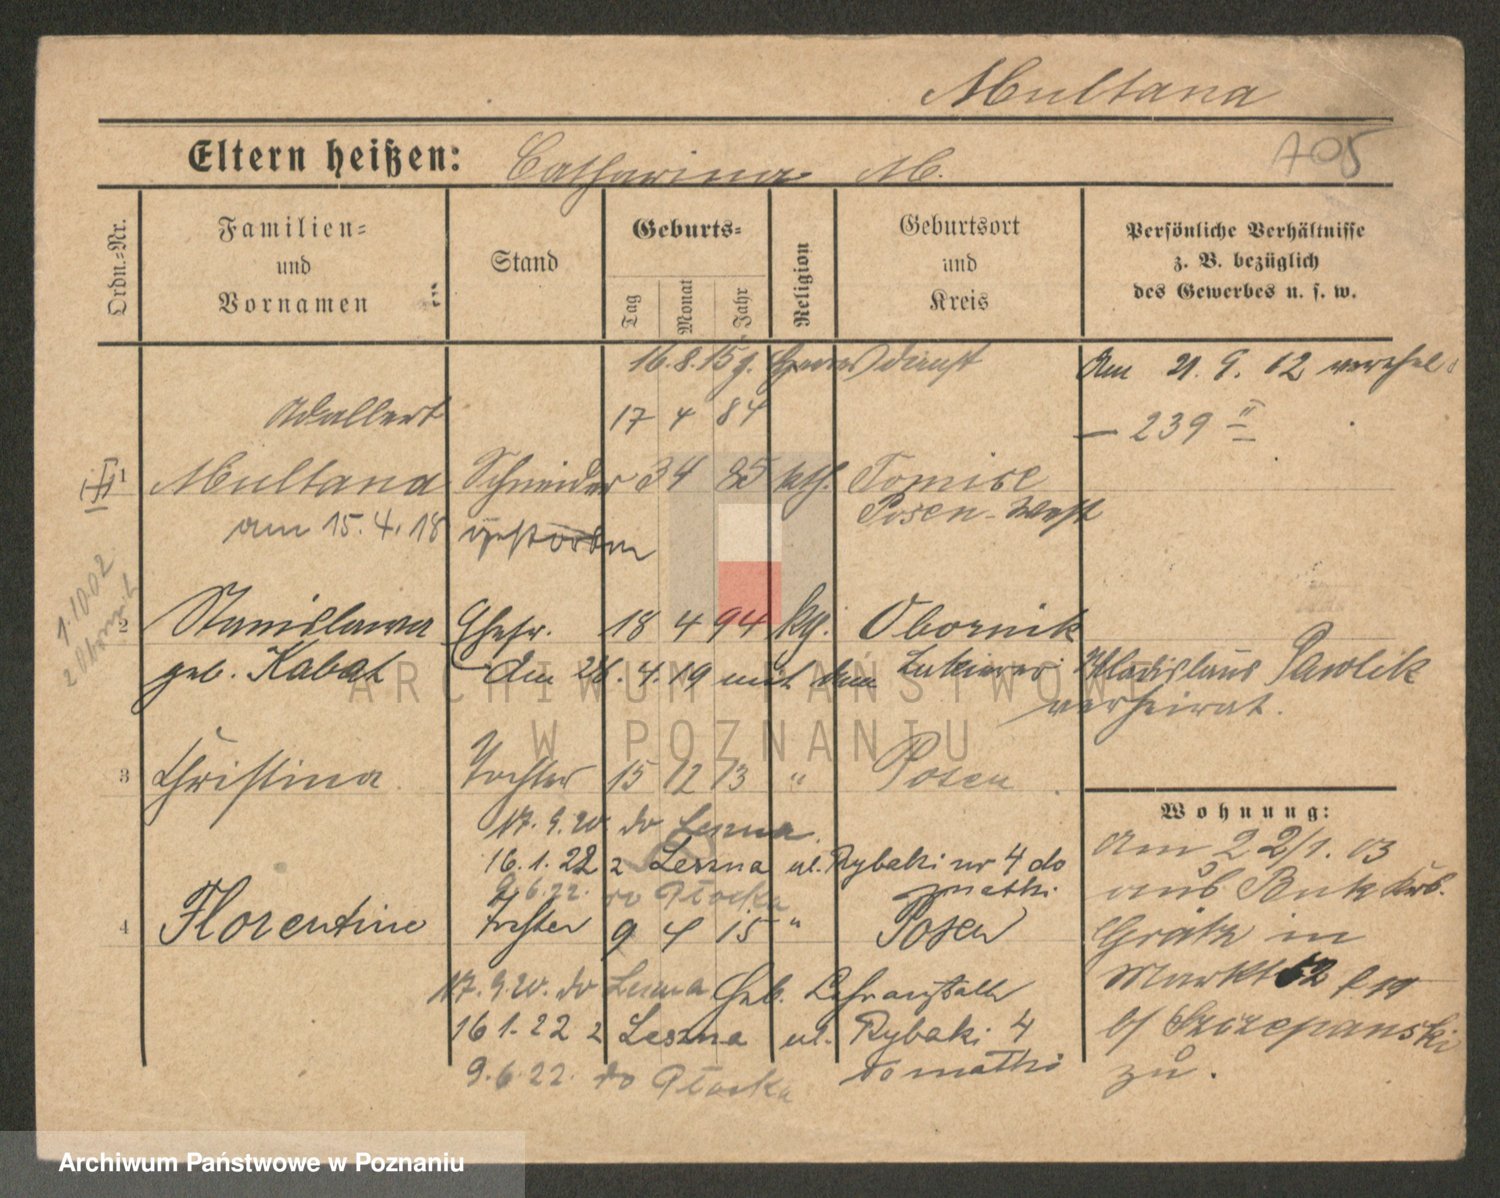 Multana
A05
Eltern heißen: Catharina M.
Ordn.-Nr.
Familien-
und
Vornamen
Stand
Geburts-
Tag
Monat
Jahr
Religion
Geburtsort
und
Kreis
Persönliche Verhältnisse
z. B. bezüglich
des Gewerbes u. s. w.
16.8.15 z. Heeresdienst
Am 21. 9. 12 verehel.
Adalbert 17 4 84
— 239 II
1 Multana Schneider 3 4 85 kth. Tomice
Posen-West
am 15.4.18 verstorben
1.10 02
z Obornik
2 Stanislawa Ehefr. 18 4 94 kg. Obornik
geb. Kabat Am 26.4.19 mit dem Wladislaus Pawlik
verheirat.
3 Christina Tochter 15 12 13 " Posen
17.9.20 do Leszna
16.1.22 z Leszna ul. Rybaki nr 4 do
matki
9.6.22. do Płocka
4 Florentine Tochter 9 4 15 " Posen
17.9.20. do Leszna Geb.
16 1.22 z Leszna ul. Rybaki 4
do matki
9.6.22. do Płocka
Wohnung:
Am 22/1. 03
aus Buk Krs.
Grätz in
Markt 52
b/ Szczepanski
zu.
ARCHIWUM PAŃSTWOWE
W POZNANIU
Archiwum Państwowe w Poznaniu